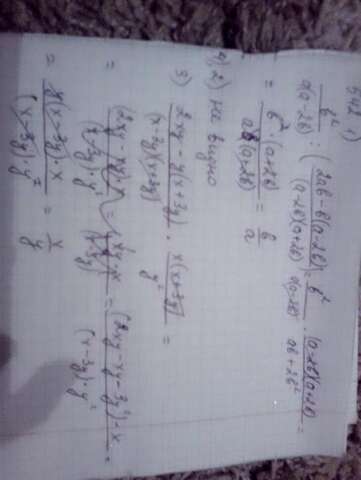 5(2 1)
b² / a(a-2b) : (2ab-b(a-2b) / (a-2b)(a+2b)) = b² / a(a-2b) · (a-2b)(a+2b) / ab+2b² =
= b²·(a+2b) / ab(a+2b) = b / a
4) 2) не видно
3) 2xy-y(x+3y) / (x-3y)(x+3y) · x(x+3y) / y² =
= (2xy-xy / (x-3y)·y² = (2xy-xy-3y²)·x / (x-3y)·y² =
= y(x-3y)·x / (x-3y)y² = x / y